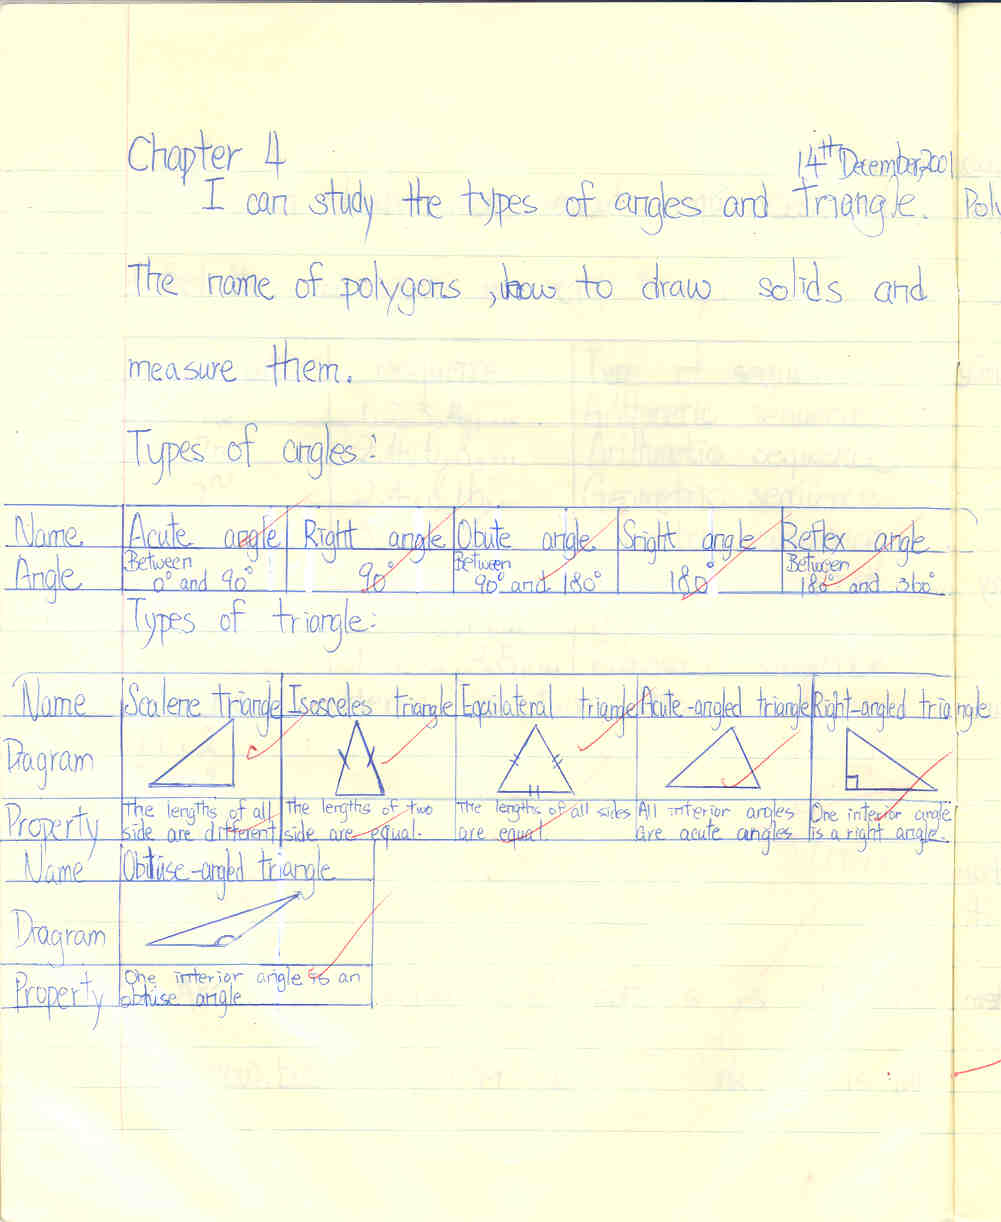 Chapter 4
14th December,2001
I can study the types of angles and Triangle.
The name of polygons ,how to draw solids and
measure them.
Types of angles:
Name Acute angle Right angle Obute angle Sright angle Reflex angle
Angle Between 0° and 90° 90° Between 90° and 180° 180° Between 180° and 360°
Types of triangle:
Name Scalene triangle Isosceles triangle Equilateral triangle Acute-angled triangle Right-angled triangle
Diagram
Property The lengths of all side are different The lengths of two side are equal. The lengths of all sides are equal. All interior angles are acute angles One interior angle is a right angle.
Name Obtuse-angled triangle
Diagram
Property One interior angle is an
obtuse angle